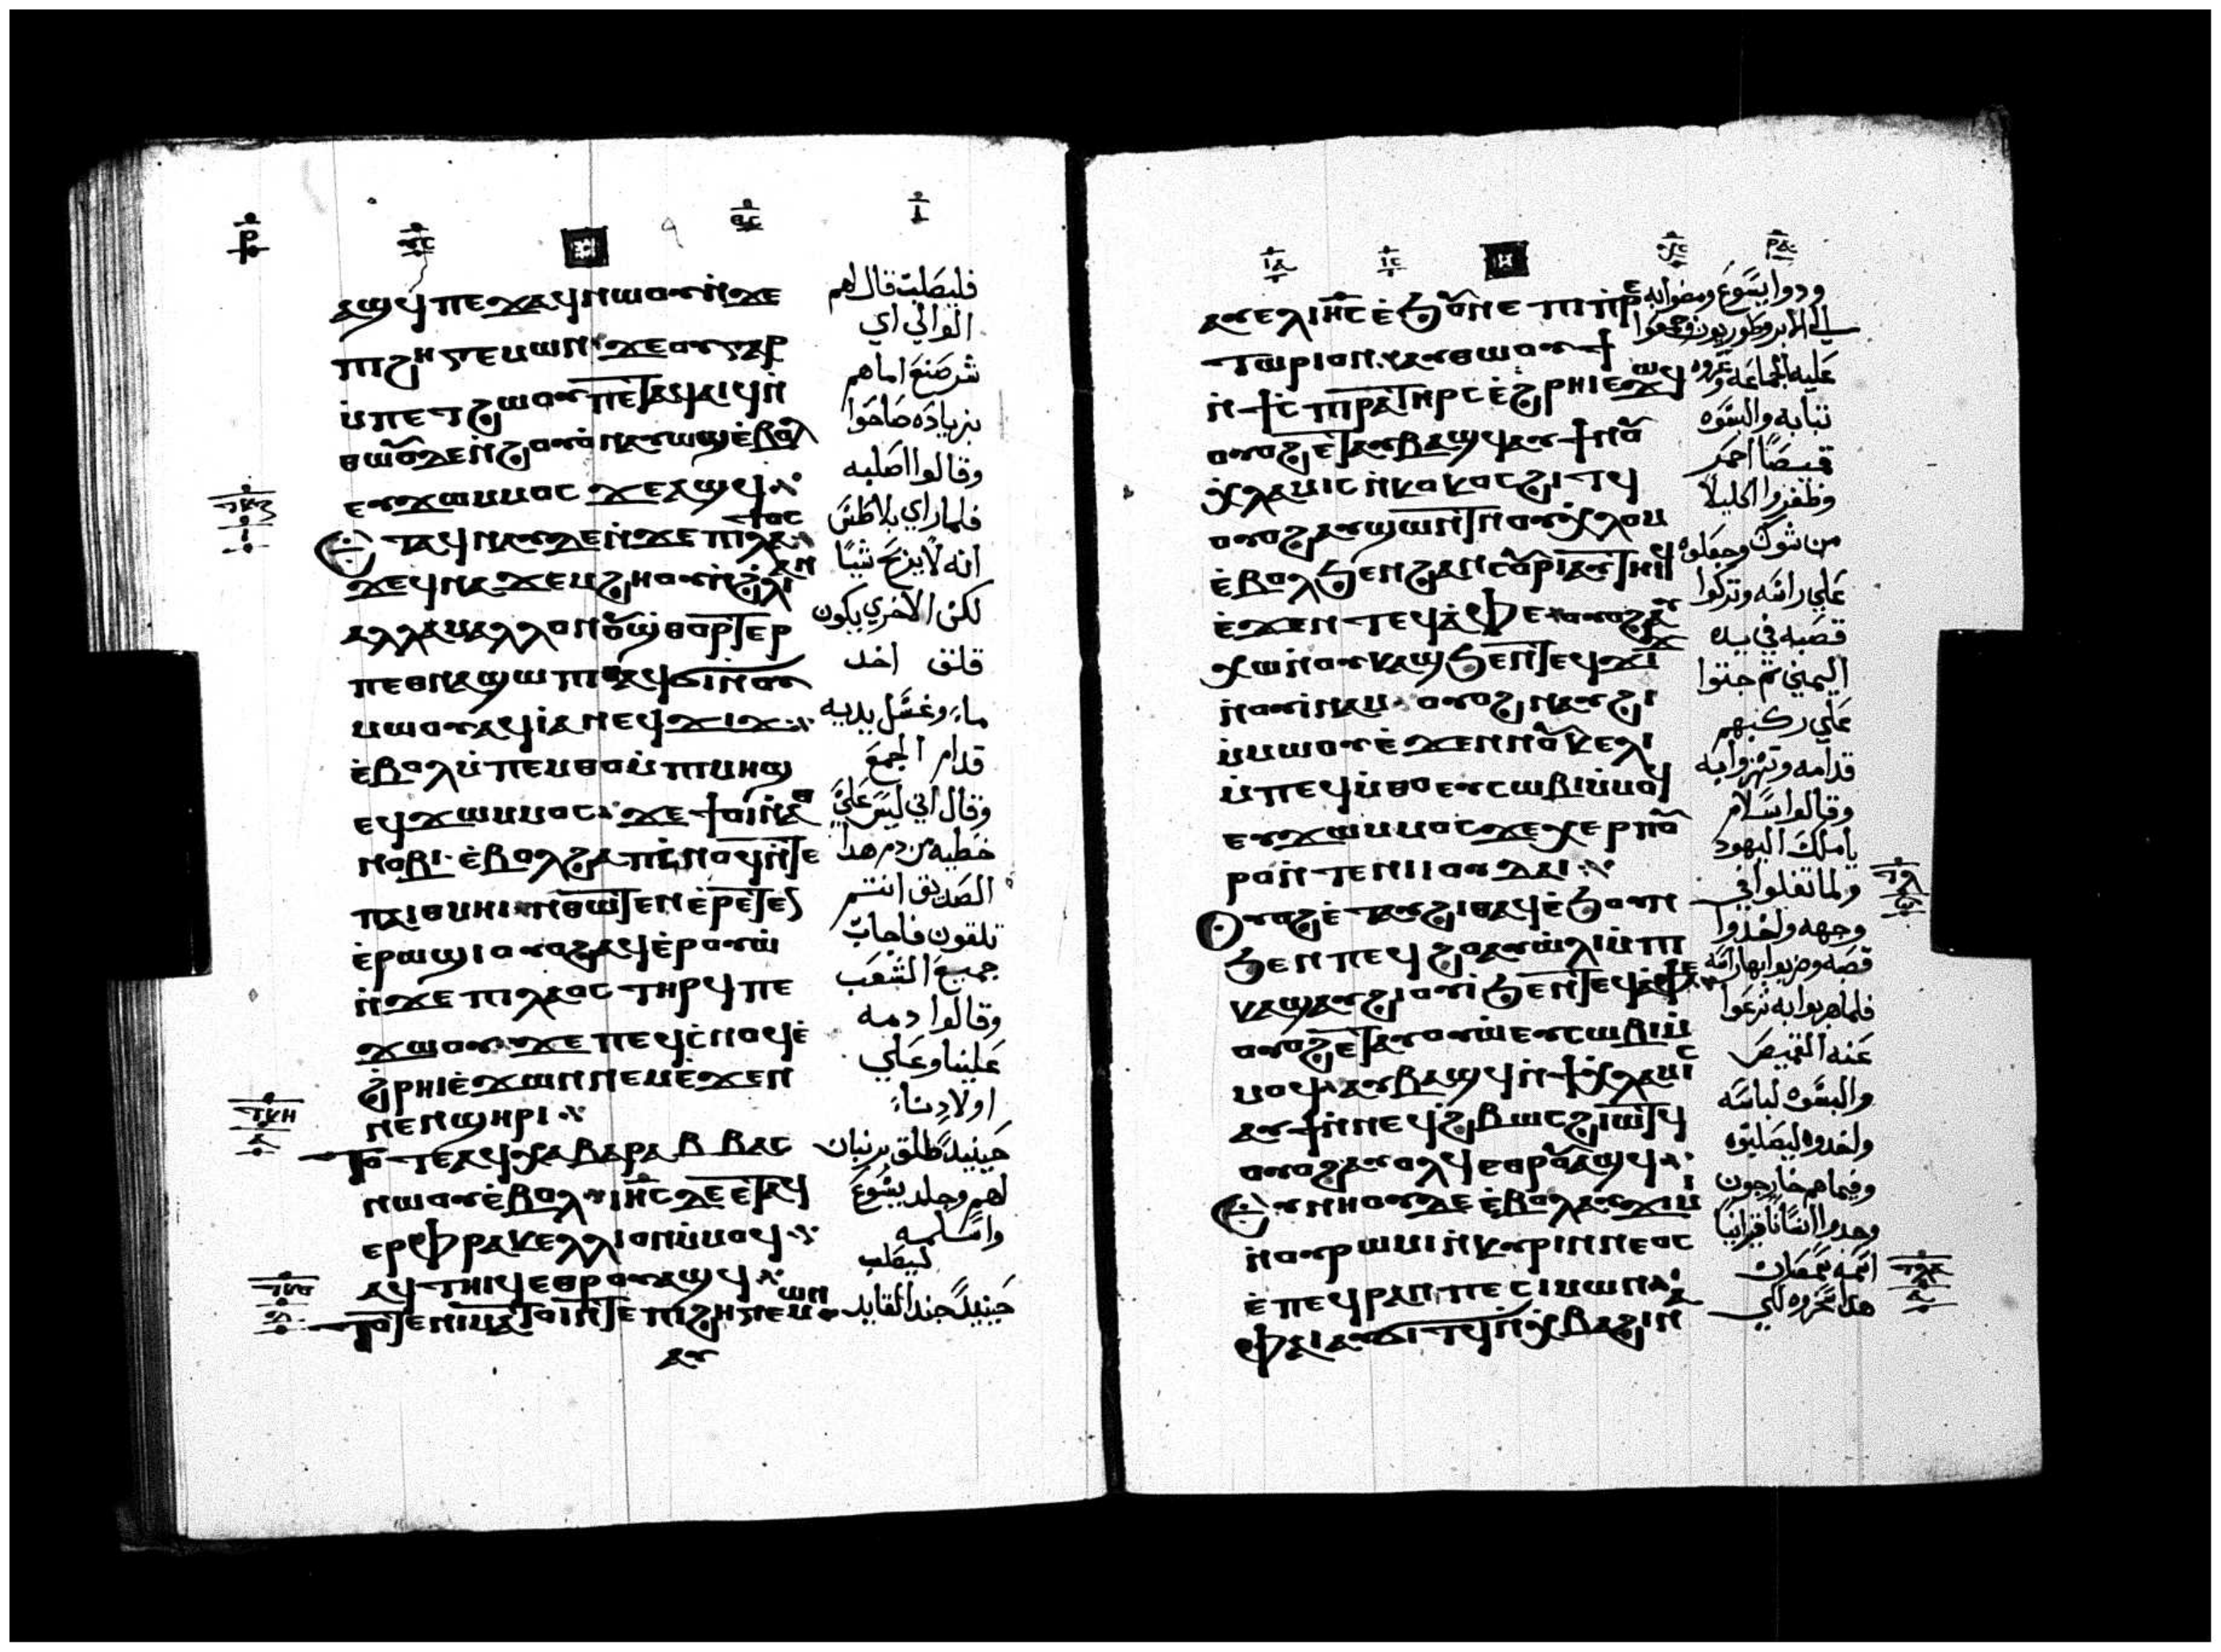 ⲁϣϥ ⲡⲉϫⲁϥ ⲛⲱⲟⲩ ⲛ̇ϫⲉ
ⲡⲓϩⲏⲅⲉⲙⲱⲛ ϫⲉ ⲟⲩ ⲅⲁⲣ
ⲙ̇ⲡⲉⲧϩⲱⲟⲩ ⲡⲉⲧⲁϥⲁⲓϥ ⲛ̇
ⲑⲱⲟⲩ ⲇⲉ ⲛ̇ϩⲟⲩⲟ̇ ⲛⲁⲩⲱϣ ⲉ̇ⲃⲟⲗ
ⲉⲩϫⲱⲙⲙⲟⲥ ϫⲉ ⲁϣϥ
ⲉⲧⲁϥⲛⲁⲩ ⲇⲉ ⲛ̇ϫⲉ ⲡⲓⲗⲁⲧⲟⲥ
ϫⲉ ϥⲛⲁϫⲉⲙϩⲏⲟⲩ ⲛ̇ϩⲗⲓ ⲁⲛ
ⲁⲗⲗⲁ ⲙⲁⲗⲗⲟⲛ ⲟⲩϣⲑⲟⲣⲧⲉⲣ
ⲡⲉⲑⲛⲁϣⲱⲡⲓ ⲁϥϭⲓ ⲛ̇ⲟⲩ
ⲙⲱⲟⲩ ⲁϥⲓⲁ ⲛⲉϥϫⲓϫ
ⲉ̇ⲃⲟⲗ ⲙ̇ⲡⲉⲙⲑⲟ ⲙ̇ⲡⲓⲙⲏϣ
ⲉϥϫⲱⲙⲙⲟⲥ ϫⲉ ϯⲟⲓ ⲛ̇ⲁⲑ
ⲛⲟⲃⲓ ⲉ̇ⲃⲟⲗϩⲁ ⲡ̇ⲥⲛⲟϥ ⲛ̇ⲧⲉ
ⲡⲁⲓⲑⲙⲏⲓ ⲛ̇ⲑⲱⲧⲉⲛ ⲉⲣⲉⲧⲉⲛ
ⲉ̇ⲣⲱϣⲓ ⲟⲩⲟϩ ⲁϥⲉ̇ⲣⲟⲩⲱ̇
ⲛ̇ϫⲉ ⲡⲓⲗⲁⲟⲥ ⲧⲏⲣϥ ⲡⲉ
ϫⲱⲟⲩ ϫⲉ ⲡⲉϥⲥ̇ⲛⲟϥ ⲉ̇
ϩ̇ⲣⲏⲓ ⲉ̇ϫⲱⲛ ⲛⲉⲙ ⲉ̇ϫⲉⲛ
ⲛⲉⲛϣⲏⲣⲓ
ⲧⲟⲧⲉ ⲁϥⲭⲁ ⲃⲁⲣⲁⲃⲃⲁⲥ
ⲛⲱⲟⲩ ⲉ̇ⲃⲟⲗ ⲓⲏ̅ⲥ ⲇⲉ ⲉⲧⲁϥ
ⲉⲣⲫⲣⲁⲕⲉⲗⲗⲓⲟⲛ ⲙ̇ⲙⲟϥ
ⲁϥⲧⲏⲓϥ ⲉⲑⲣⲟⲩⲁϣϥ
ⲧⲟⲧⲉ ⲛⲓⲙⲁⲧⲟⲓ ⲛ̇ⲧⲉ ⲡⲓϩⲏⲅⲉⲙⲱⲛ
ⲁⲩ
فليصلب قال لهم
الوالي اي
شر صنع اماهم
بزياده صاحوا
وقالوا اصلبه
فلما راي بلاطس
انه لا يربح شيا
لكن الاخري يكون
قلق اخد
ماء وغسل يديه
قدام الجمع
وقال اني ليس علي
خطيه من دم هدا
الصديق انتم
تلقون فاجاب
جميع الشعب
وقالوا دمه
علينا وعلي
اولادنا
حينيد اطلق برنبان
لهم وجلد يسوع
واسلمه
ليصلب
حينيد جند القايد
ⲁⲩⲉⲗ ⲓⲏ̅ⲥ ⲉ̇ϧⲟⲩⲛ ⲉ ⲡⲓⲡⲣⲉ
ⲧⲱⲣⲓⲟⲛ ⲁⲩⲑⲱⲟⲩϯ
ⲛ̇ϯⲥⲡⲓⲣⲁ ⲧⲏⲣⲥ ⲉ̇ϩⲣⲏⲓ ⲉϫⲱϥ
ⲟⲩⲟϩ ⲉⲧⲁⲩⲃⲁϣϥ ⲁⲩϯ ⲛⲟⲩ
ⲭⲗⲁⲙⲓⲥ ⲛ̇ⲕⲟⲕⲟⲥ ϩⲓⲧϥ
ⲟⲩⲟϩ ⲁⲩϣⲱⲛⲧ ⲛⲟⲩⲭⲗⲟⲙ
ⲉ̇ⲃⲟⲗϧⲉⲛ ϩⲁⲛⲥⲟⲩⲣⲓ ⲁⲩⲧⲏⲓϥ
ⲉ̇ϫⲉⲛ ⲧⲉϥⲁ̇ⲫⲉ ⲟⲩⲟϩ ⲁⲩ
ⲭⲱ ⲛ̇ⲟⲩⲕⲁϣ ϧⲉⲛ ⲧⲉϥϫⲓϫ
ⲛ̇ⲟⲩⲓ̇ⲛⲁⲙ ⲟⲩⲟϩ ⲛⲁⲩϩⲓ
ⲙ̇ⲙⲱⲟⲩ ⲉ̇ϫⲉⲛ ⲛⲟⲩⲕⲉⲗⲓ
ⲙ̇ⲡⲉϥⲙ̇ⲑⲟ ⲉⲩⲥⲱⲃⲓ ⲙ̇ⲙⲟϥ
ⲉⲩϫⲱⲙⲙⲟⲥ ϫⲉ ⲭⲉⲣⲉ ⲡⲟⲩ
ⲣⲟ ⲛ̇ⲧⲉ ⲛⲓⲓⲟⲩⲇⲁⲓ
ⲟⲩⲟϩ ⲉ̇ⲧⲁⲩϩⲓⲑⲁϥ ⲉ̇ϧⲟⲩⲛ
ϧⲉⲛ ⲡⲉϥϩⲟ ⲁⲩⲱ̇ⲗⲓ ⲙ̇ⲡⲓ
ⲕⲁϣ ⲁⲩϩⲓⲟⲩⲓ̇ ϧⲉⲛ ⲧⲉϥⲁ̇ⲫⲉ
ⲟⲩⲟϩ ⲉⲧⲁⲩⲟⲩⲱ̇ ⲉⲩⲥⲱⲃⲓ ⲙ̇
ⲙⲟϥ ⲁⲩⲃⲁϣϥ ⲛ̇ϯⲭⲗⲁⲙⲓⲥ
ⲁⲩϯ ⲛ̇ⲛⲉϥϩ̇ⲃⲱⲥ ϩⲓⲱⲧϥ
ⲟⲩⲟϩ ⲁⲩⲟⲗϥ ⲉⲑⲣⲟⲩⲁϣϥ
ⲉⲩⲛⲏⲟⲩ ⲇⲉ ⲉ̇ⲃⲟⲗ ⲁⲩϫⲓⲙⲓ
ⲛ̇ⲟⲩⲣⲱⲙⲓ ⲛ̇ⲕⲩⲣⲓⲛⲛⲉⲟⲥ
ⲉ̇ⲡⲉϥⲣⲁⲛ ⲡⲉ ⲥⲓⲙⲱⲛ
ⲫⲁⲓ ⲁⲩϭⲓⲧϥ ⲛ̇ⲭⲃⲁ ϩⲓⲛⲁ
ودوا يسوع ومضوا به
الي الابروطوريون وجمعوا
عليه الجماعه وعروه
تيابه والبسوه
قميصا احمر
وظفروا اكليلا
من شوك وجعلوه
علي راسه وتركوا
قصبه في يده
اليمني تم جتوا
علي ركبهم
قدامه وتهزوا به
وقالوا سلام
يا ملك اليهود
ولما تفلوا في
وجهه واخدوا
قصبه وضربوا بها راسه
فلما هزوا به نزعوا
عنه القميص
والبسوه لباسه
واخدوه ليصلبوه
وفيما هم خارجون
وجدوا انسانا قيرانيا
اسمه سمعان
هدا سخروه لكي